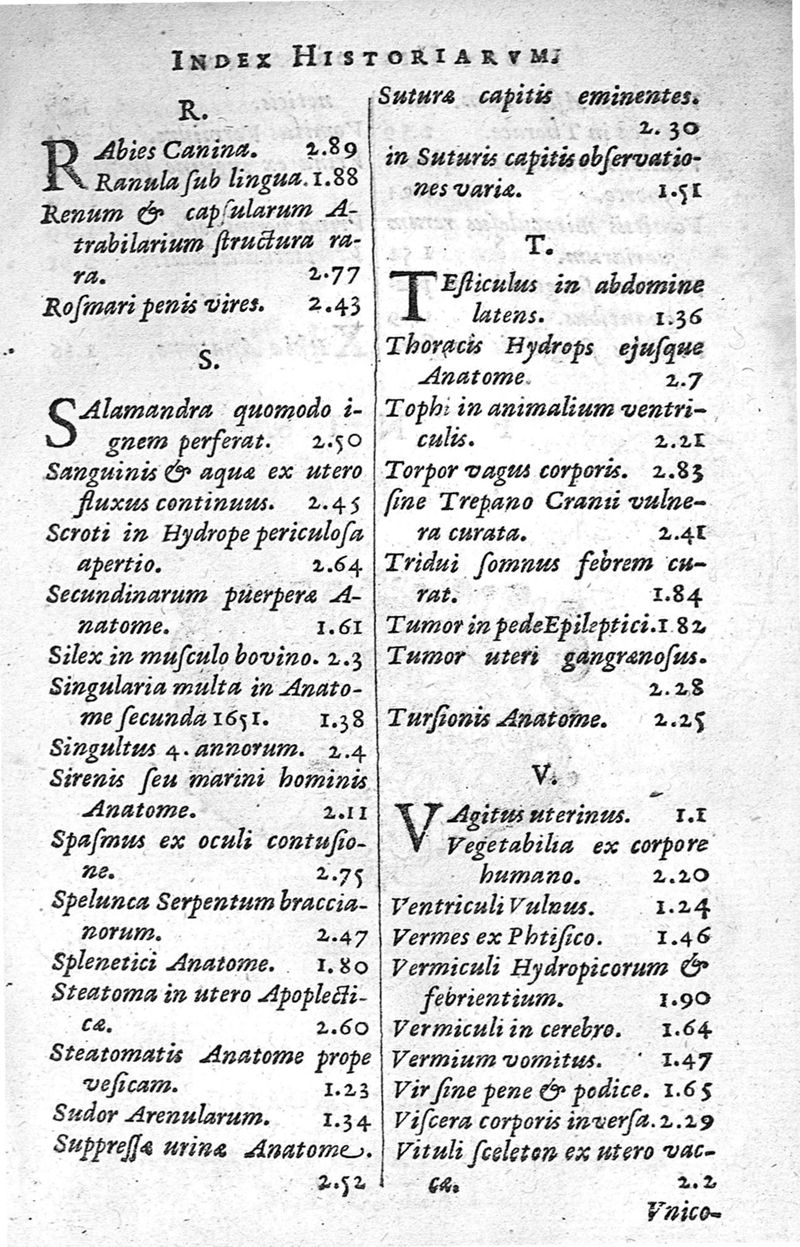 INDEX HISTORIARVM.
R.
RAbies Canina. 2.89
Ranula ſub lingua. 1.88
Renum & capſularum A-
trabilarium ſtructura ra-
ra. 2.77
Roſmari penis vires. 2.43
S.
SAlamandra quomodo i-
gnem perferat. 2.50
Sanguinis & aquæ ex utero
fluxus continuus. 2.45
Scroti in Hydrope periculoſa
apertio. 2.64
Secundinarum puerperæ A-
natome. 1.61
Silex in muſculo bovino. 2.3
Singularia multa in Anato-
me ſecunda 1651. 1.38
Singultus 4. annorum. 2.4
Sirenis ſeu marini hominis
Anatome. 2.11
Spaſmus ex oculi contuſio-
ne. 2.75
Spelunca Serpentum braccia-
norum. 2.47
Splenetici Anatome. 1.80
Steatoma in utero Apoplecti-
cæ. 2.60
Steatomatis Anatome prope
veſicam. 1.23
Sudor Arenularum. 1.34
Suppreſſæ urinæ Anatome.
2.52
Suturæ capitis eminentes.
2.30
in Suturis capitis obſervatio-
nes variæ. 1.51
T.
TEſticulus in abdomine
latens. 1.36
Thoracis Hydrops ejuſque
Anatome. 2.7
Tophi in animalium ventri-
culis. 2.21
Torpor vagus corporis. 2.83
ſine Trepano Cranii vulne-
ra curata. 2.41
Tridui ſomnus febrem cu-
rat. 1.84
Tumor in pede Epileptici. 1.82
Tumor uteri gangrænoſus.
2.28
Turſionis Anatome. 2.25
V.
VAgitus uterinus. 1.1
Vegetabilia ex corpore
humano. 2.20
Ventriculi Vulnus. 1.24
Vermes ex Phtiſico. 1.46
Vermiculi Hydropicorum &
febrientium. 1.90
Vermiculi in cerebro. 1.64
Vermium vomitus. 1.47
Vir ſine pene & podice. 1.65
Viſcera corporis inverſa. 2.29
Vituli ſceleton ex utero vac-
cæ. 2.2
Vnico-